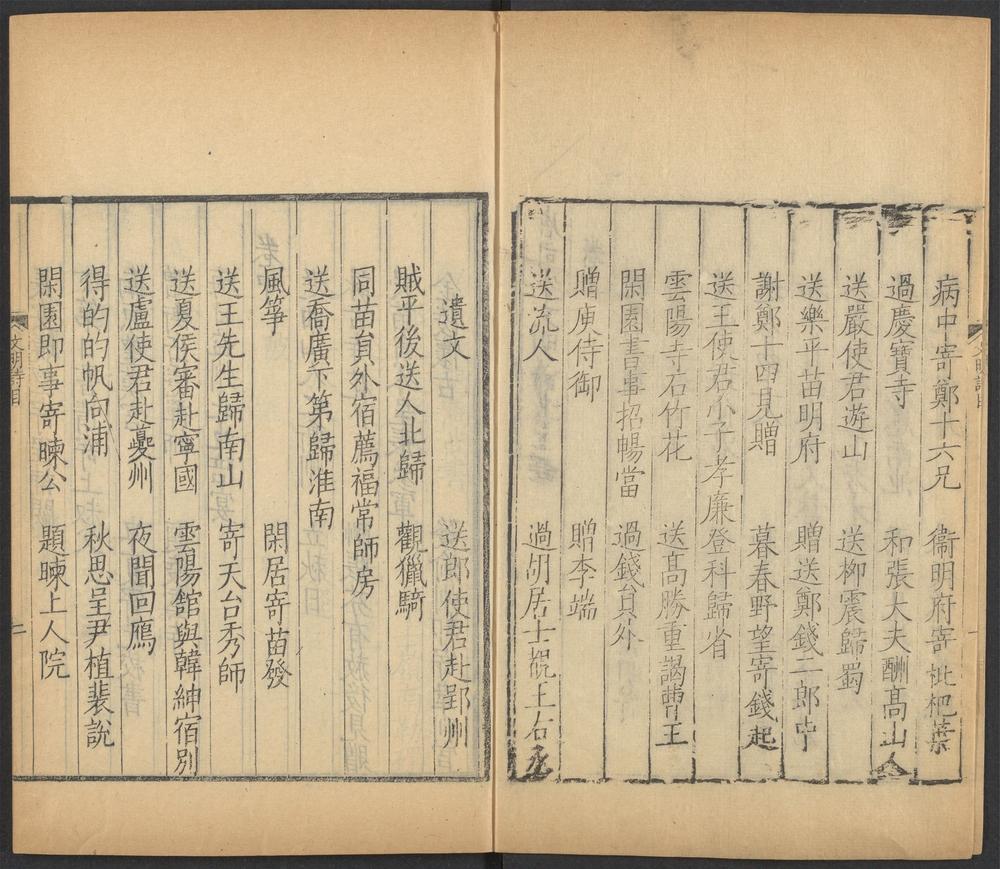 病中寄鄭十六兄 衞明府寄枇杷葉
過慶寶寺 和張大夫酬髙山人
送嚴使君遊山 送柳震歸蜀
送樂平苗明府 贈送鄭錢二郎中
謝鄭十四見贈 暮春野望寄錢起
送王使君小子孝廉登科歸省
雲陽寺石竹花 送髙勝重謁曹王
閑園書事招暢當 過錢貟外
贈庾侍御 贈李端
送流人 過胡居士覩王右丞
遺文
送郎使君赴郢州
賊平後送人北歸 觀獵騎
同苗貟外宿薦福常師房
送喬廣下第歸淮南
風箏 閑居寄苗發
送王先生歸南山 寄天台秀師
送夏侯審赴寧國 雲陽館與韓紳宿别
送盧使君赴夔州 夜聞回鴈
得的的帆向浦 秋思呈尹植裴説
閑園即事寄暕公 題暕上人院
文明詩目 二